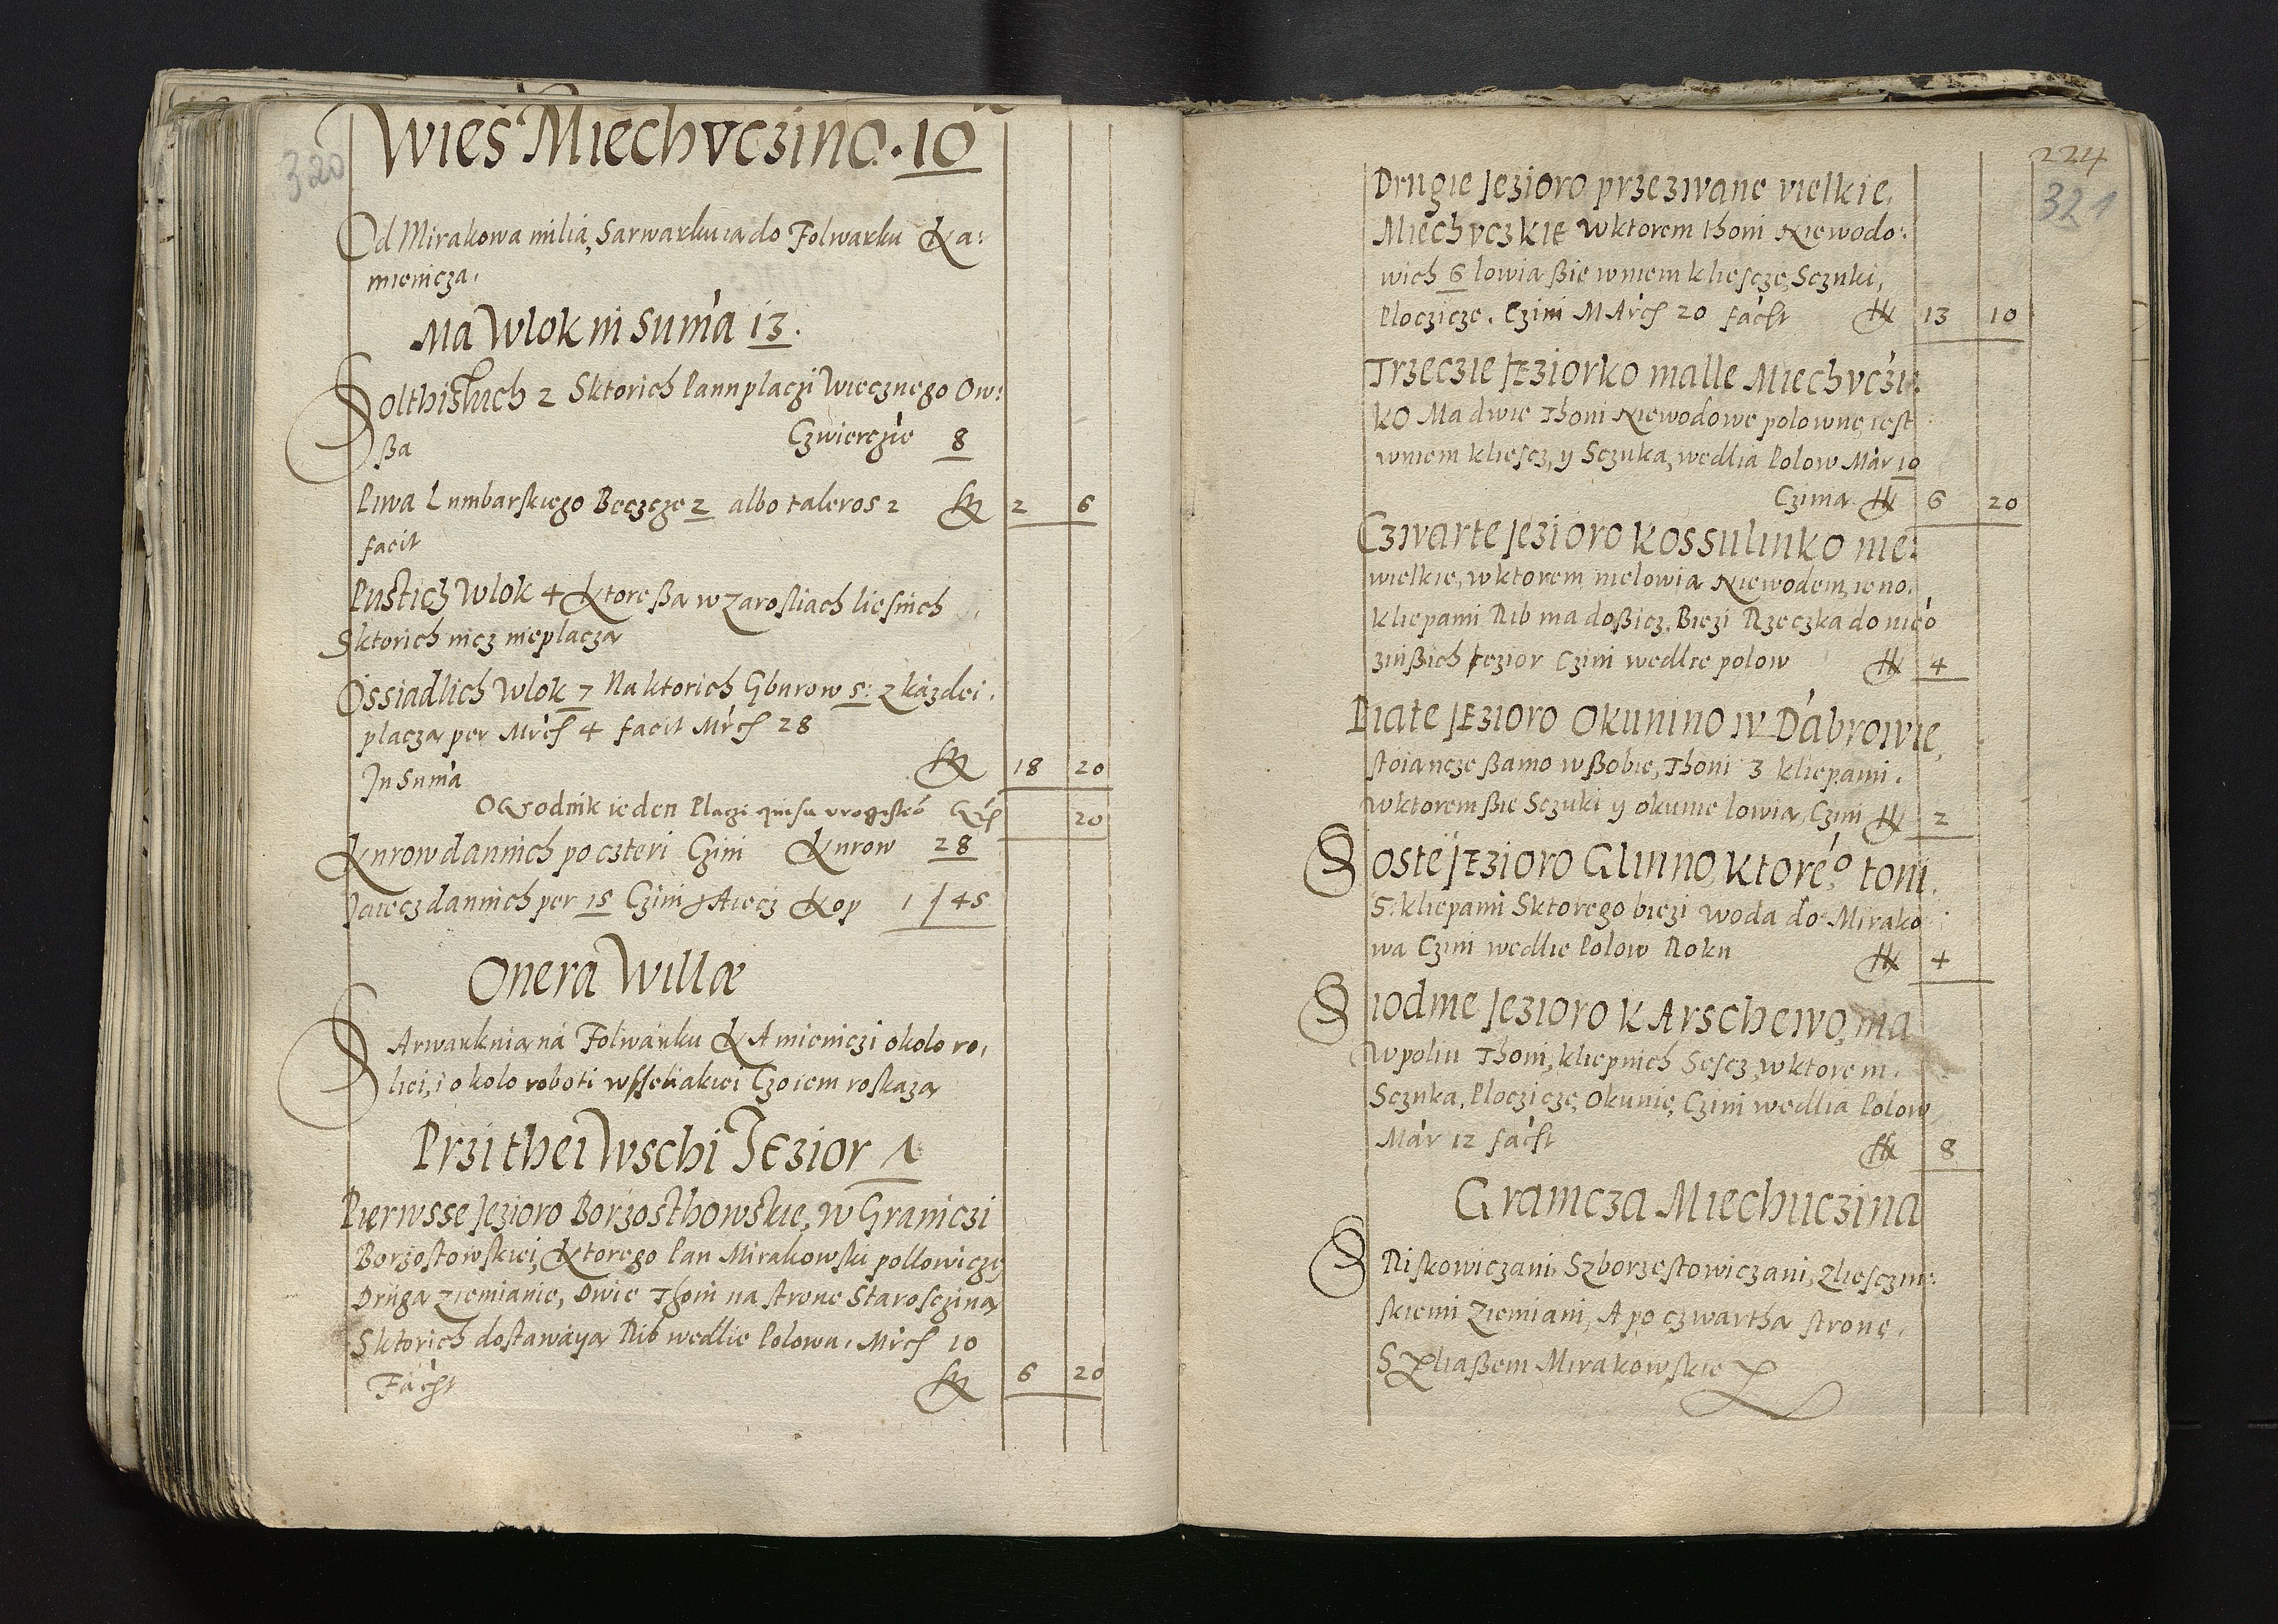 320
Wies Miechvczino. 10
Od Mirakowa milia, Sarwarkuia do Folwarku Ka:
mienicza.
Ma Wlok in Suma 13.
Solthiskich 2 Sktorich Pann placzi Wiecznego Ow:
ßa Czwierczie 8
Piwa Lumbarskiego Beczcze 2 albo taleros 2 2 6
facit
Pustich Wlok 4 Ktore ßa w Zarosliach liesnich
Sktorich nicz nieplacza
Ossiadlich Wlok 7 Na ktorich Gburow 5: z kazdei.
placza per Mrcf 4 facit Mrcf 28
In Suma 18 20
OGrodnik ieden Placzi 20
Kurow dannich po czteri Czini Kurow 28
Jaiecz dannich per 15 Czini JAiecz Kop 1 / 45
Onera Willæ
SArwarkuia na Folwarku KAmieniczi okolo ro.
liei, i okolo roboti wsseliakiei Czo iem roskaza
Przi thei Wschi JEzior
Pierwsse Jezioro Borzosthowskie, w Graniczi
Borzostowskiei, Ktorego Pan Mirakowski pollowicze,
Druga ziemianie, Dwie Thoni na strone Starosczina
Sktorich dostawaya Rib wedlie Polowu. Mrcf 10
Facst 6 20
224
321
Drugie Jezioro przezwane vielkie.
Miechvczkie Wktorem thoni Niewodo:
wich 6 lowia ßie wniem kliescze, Sczuki,
Ploczicze. Czini MArcf 20 facst 13 10
Trzeczie JEziorko malle Miechvczi:
ko Ma dwie Thoni Niewodowe polowne, iest
wniem kliescz, y Sczuka, wedlia Polow Mar 10
Czima 6 20
Czwarte Jezioro Kossulinko nie:
wielkie, wktorem nielowia Niewodem, ieno.
kliepami Rib ma doßicz, Biezi Rzeczka do nieo
zinßich Jezior Czini wedlie polow 4
Piate JEzioro Okunino w Dabrowie,
stoiancze ßamo w ßobie, Thoni 3 kliepami.
wktorem ßie Sczuki y okunie lowia, Czini 2
Soste JEzioro Glinno, ktoreo toni.
5: kliepami Sktorego biezi woda do Mirako
wa Czini wedlie Polow Roku 4
Siodme Jezioro KArschewo, ma
Wpoliu Thoni, kliepnich Sescz, wktorem.
Sczuka, Ploczicze, Okunie, Czini wedlia Polow
Mar 12 facst 8
Granicza Miechuczina
S Riskowiczani Szborzestowiczani, Zliesczin:
skiemi Ziemiani, A po czwartha strone,
S Xliaßem Mirakowskie